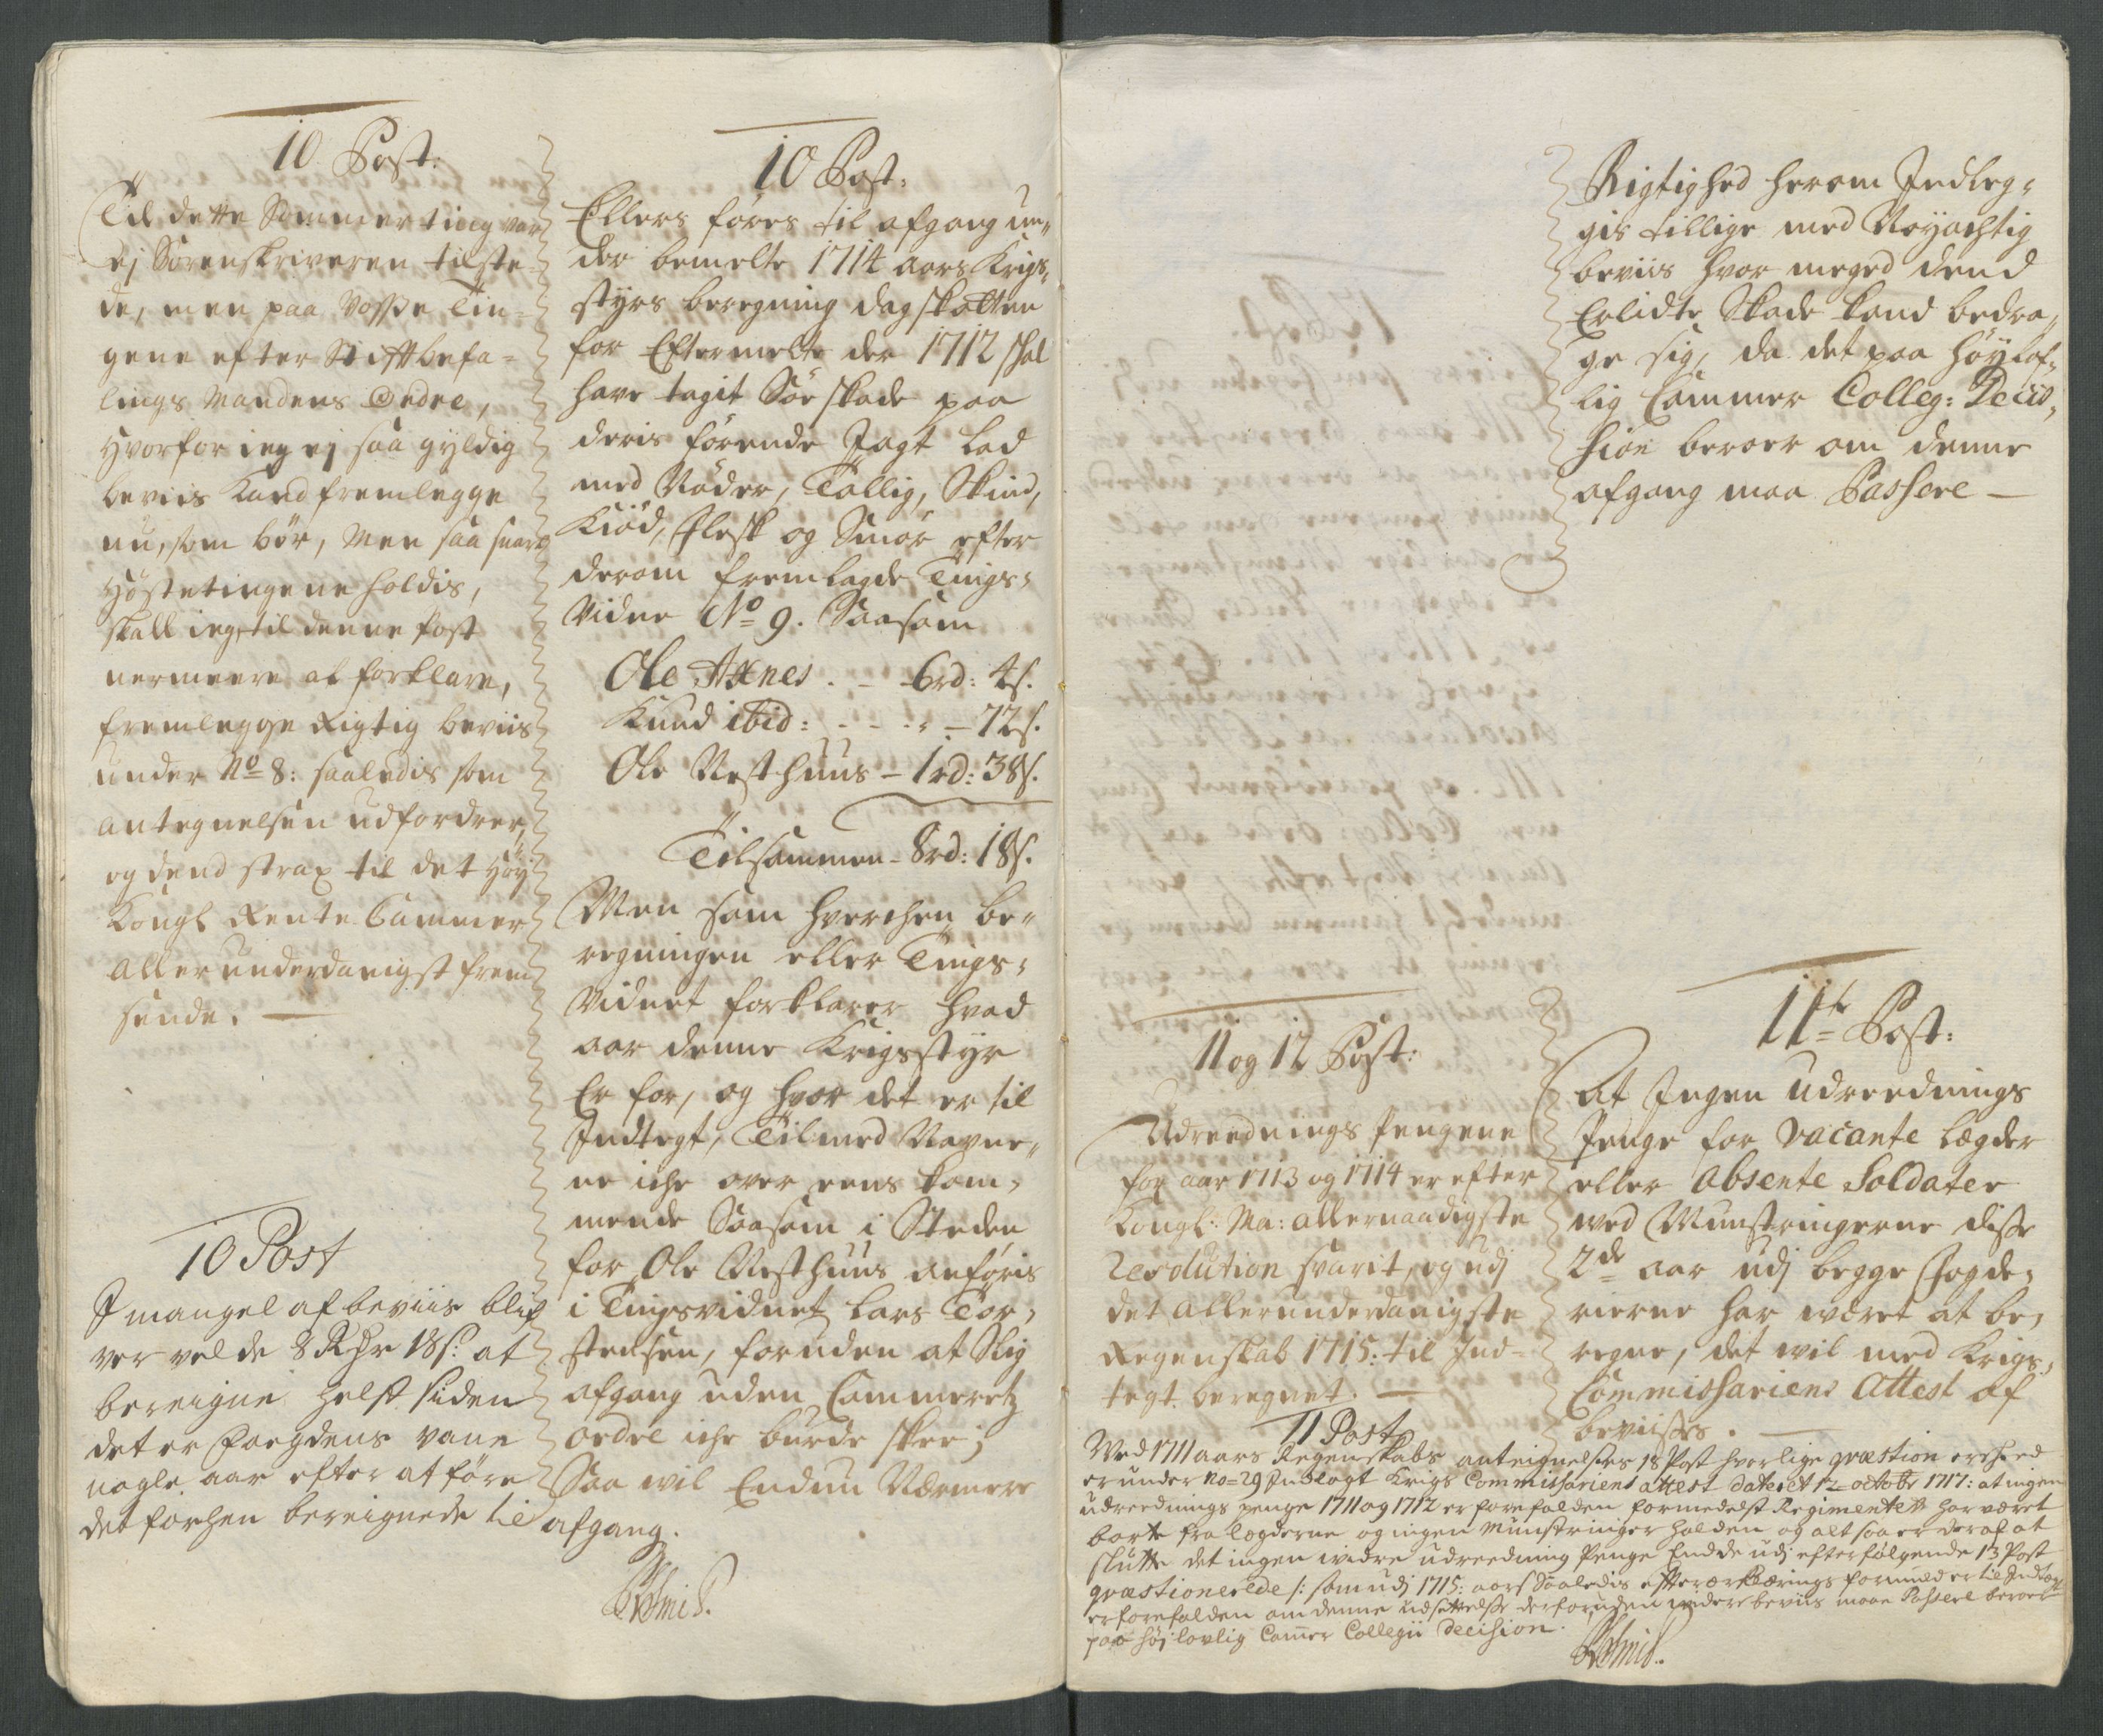 10 Post:
Til dette Sommerting var
ej Sorenskriveren tilste-
de, men paa Vosse Tin-
gene efter Stiftbefa-
lings Mandens Ordre,
hvorfor ieg ej saa gyldig
beviis kand fremlegge
nu, som bör, Men saa snart
Höstetingene holdis,
skall ieg til denne post
nermeere at forklare,
fremlegge Rigtig beviis
under No 8: saaledis som
antegnelsen udfordrer,
og dend strax til det Höy
Kongl Rente Cammer
Allerunderdanigst frem
sende. —
10 Post
I mangel af beviis blif
ver vel de 8 Rdr 18 s: at
bereigne helst siden
det er Foegdens vane
nogle aar efter at före
det forhen bereignede til afgang.
10 Post:
Ellers föres til afgang un-
der bemelte 1714 aars Krigs-
styrs beregning dagskatten
for Eftermelte der 1712 skal
have tagit Söe skade paa
deris förende Jagt lad
med Nöder, Tallig, Skind,
Kiöd, Flesk og Smör efter
derom fremlagde Tings-
Vidne No 9. Saasom
Ole Axnes . – 6rd: 4s.
Knud ibid: - - - – 72s.
Ole Nesthuus – 1rd: 38s.
Tilsammen – 8rd: 18s.
Men som hverchen be-
regningen eller Tings-
Vidnet forklarer hvad
aar denne Krigsstyr
Er for, og hvor det er til
Indtegt, Tilmed Navne-
ne iche over eens kom-
mende Saasom i Steden
for Ole Nesthuus anföris
i Tingsvidnet Lars Tor-
stensen, foruden at Slig
afgang uden Cammeretz
ordre iche burde skee;
Saa wil Endnu Nærmere
Rigtighed herom Indleg-
gis tillige med Nöyachtig
beviis hvor meged dend
Erlidte Skade kand bedra-
ge sig, da det paa höylof-
lig Cammer Colleg: Decis-
sion beroer om denne
afgang maa Passere —
11 og 12 Post:
Udreednings Pengene
for aar 1713 og 1714 er efter
Kongl: Ma: allernaadigste
Resolution svarit, og udj
det allerunderdanigste
Regenskab 1715: til Ind-
tegt beregnet. —
11te Post:
At Ingen Udreednings
Penge for vacante Lægder
eller Absente Soldater
wed Munstringerne disse
2de aar udj begge Fogde-
rierne har wæret at be-
regne, det wil med Krigs-
Commissariens Attest af
beviisses. —
11 Post
Wed 1711 aars Regenskabs anteignelses 18 Post hverlige qvæstion ersteed
er under No=29 Indlagt Krigs Commissariens attest dateret 12= octobr 1717: at ingen
udreednings penge 1711 og 1712 er forefalden formedelst Regimentett har været
borte fra Lægderne og ingen Munstringer halden og alt saa er deraf at
slutte det ingen widre udreedning Penge End de udj efterfölgende 13 Post
qvæstionerede /: som udj 1715: aars Saaledis efter erklærings formeld er til Indtægt
er forefalden om denne udsettelse derforuden widere beviis maae Passere beroer
paa höjlovlig Camer Collegii Decision.